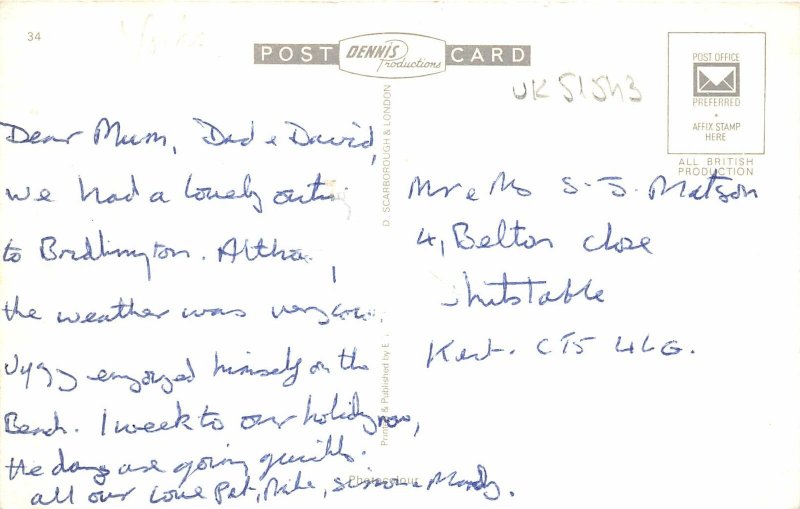 34
POST DENNIS Productions CARD
UK 51543
POST OFFICE
PREFERRED
AFFIX STAMP
HERE
ALL BRITISH
PRODUCTION
Dear Mum, Dad & David,
we had a lovely outing
to Bridlington. Altho.,
the weather was very
enjoyed himself on the
Beach. 1 week to our holiday now,
the days are going quickly.
all our love Pat, Mike, Simon & Mandy.
Printed & Published by E.
D. SCARBOROUGH & LONDON
Photocolour
Mr & Mrs S. J. Matson
4, Belton Close
Whitstable
Kent. CT5 4LG.